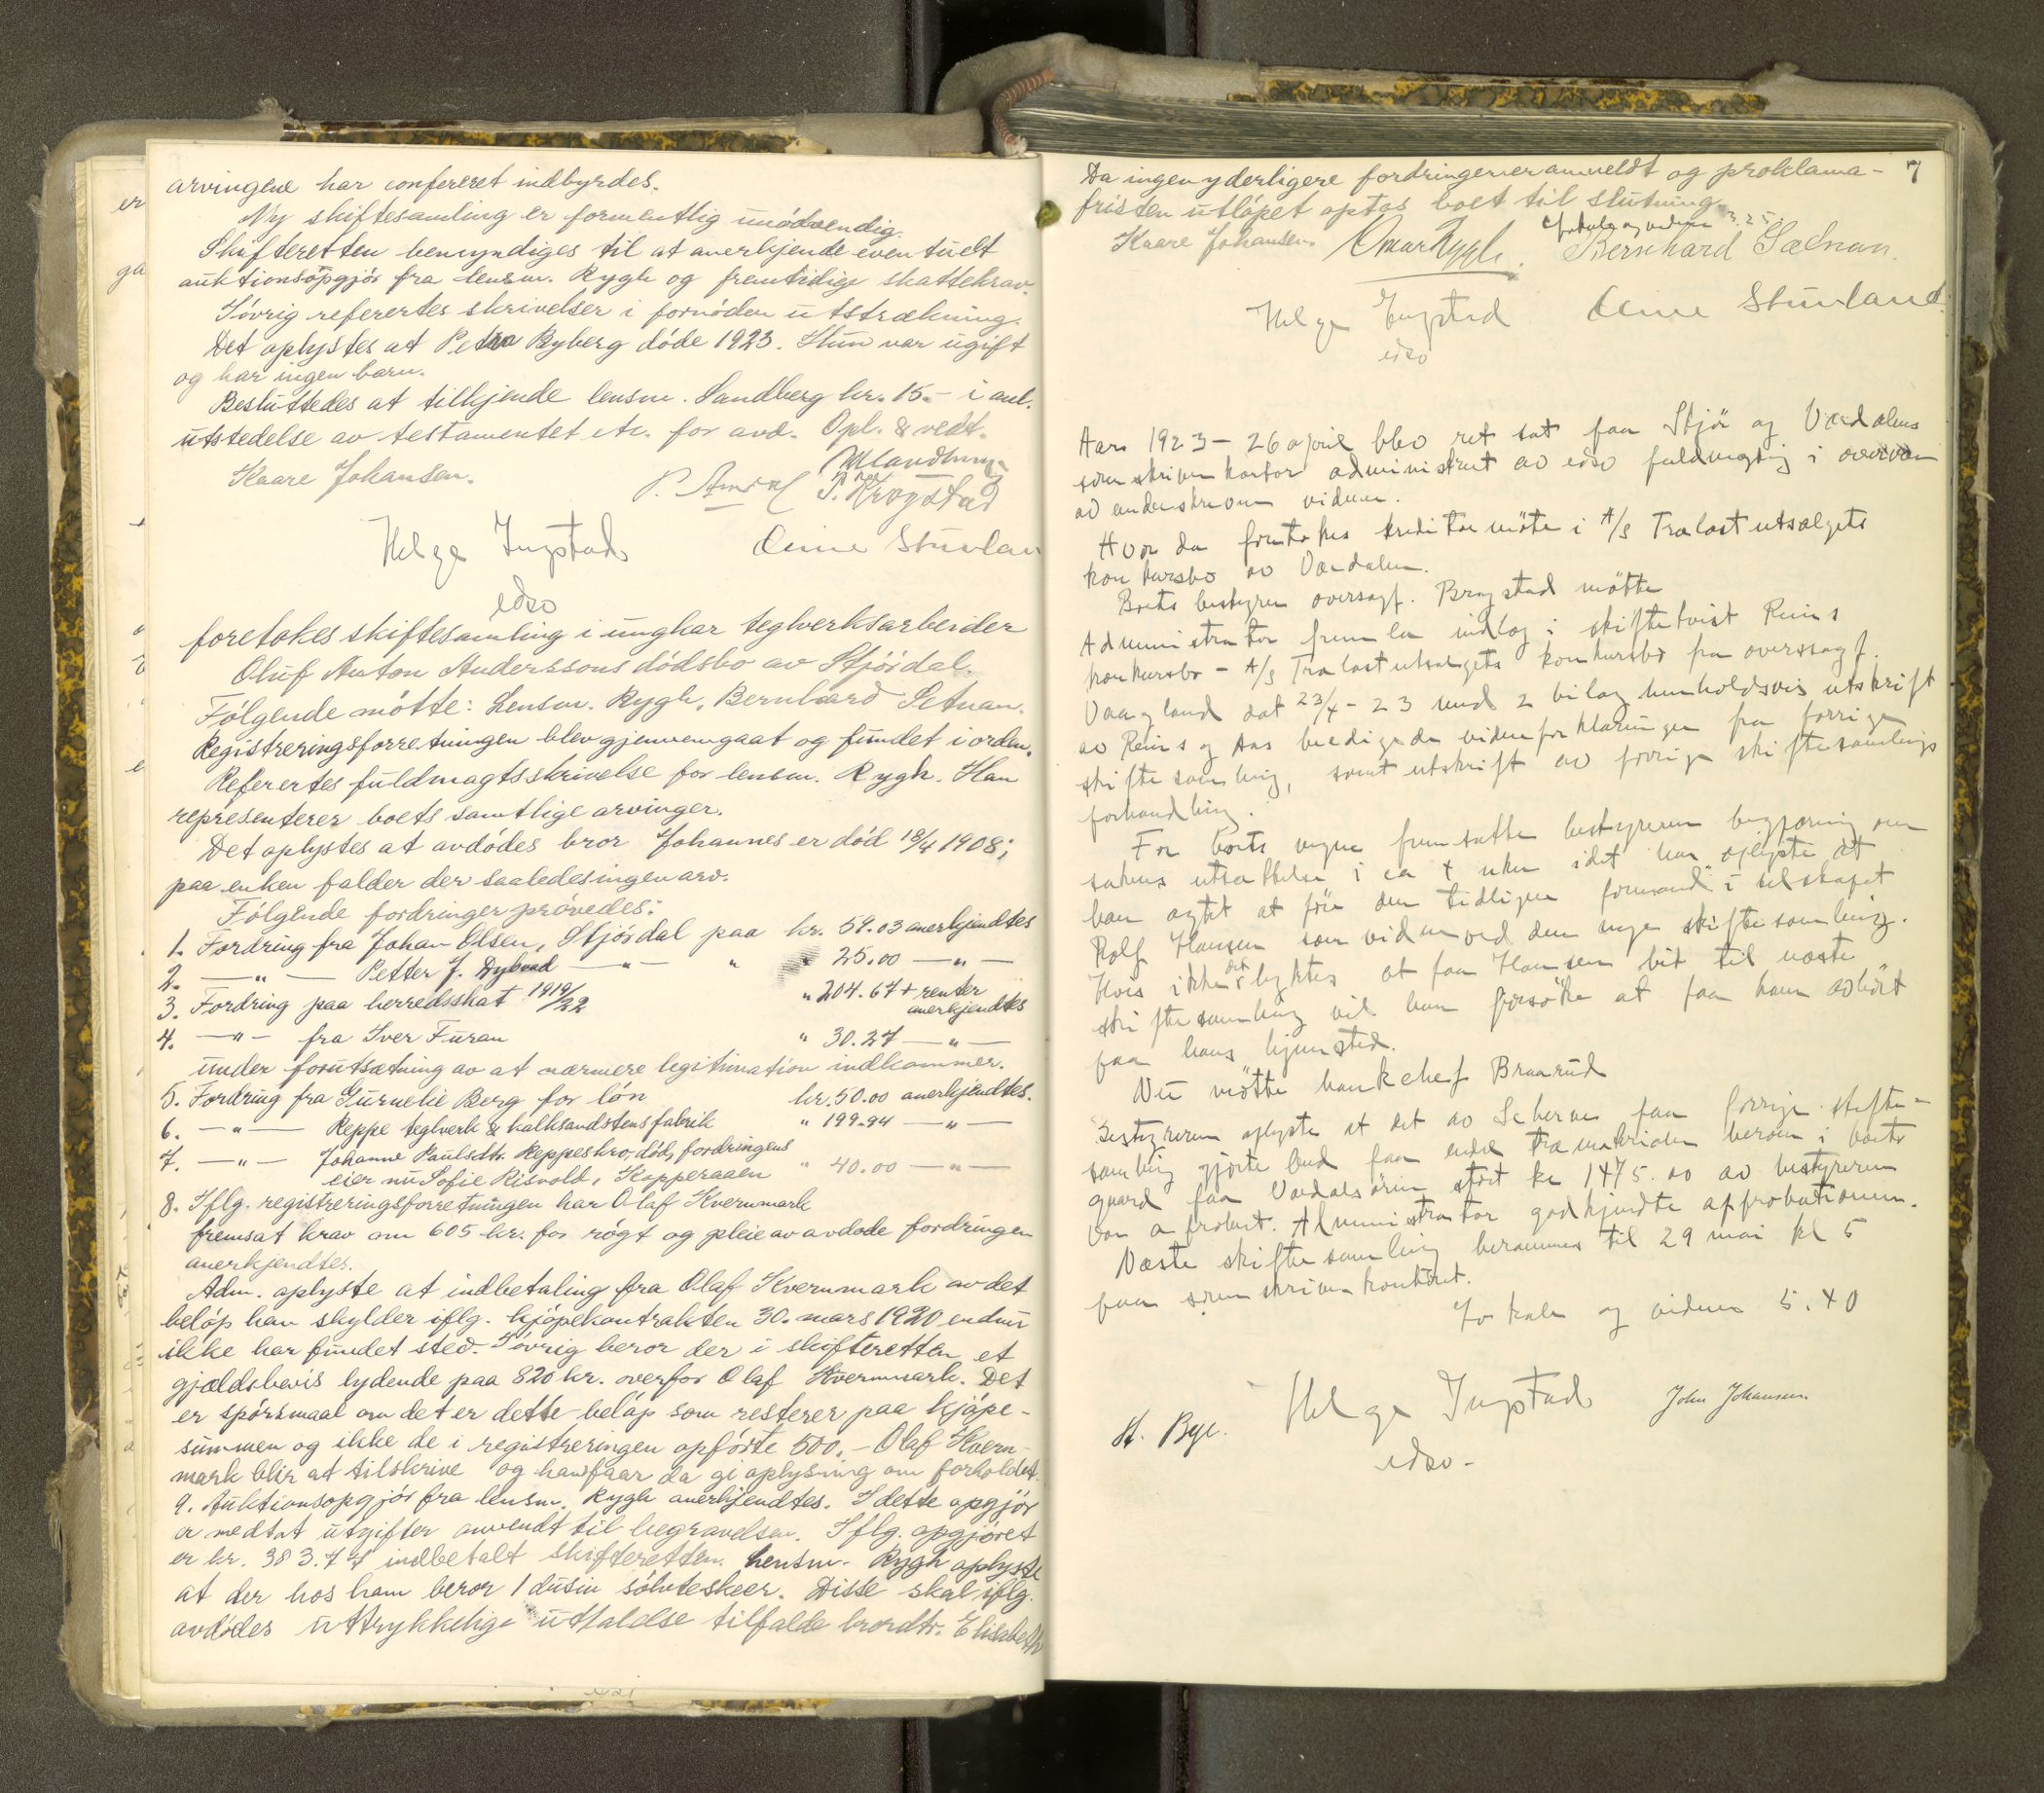 arvingene har confereret indbyrdes.
Ny skiftesamling er formentlig unödvendig.
Skifteretten bemyndiges til at anerkjende eventuelt
auktionsopgjör fra lensm. Rygh og fremtidige skattekrav.
Iövrig refererte skrivelser i fornöden utstrækning.
Det oplystes at Petra Ryberg döde 1923. Hun var ugift
og har ingen barn.
Besluttedes at tilkjende lensm. Sandberg kr. 15.- i anl.
utstedelse av testamentet etc. for avd. Opl. & vedt.
Kaare Johansen.
P. Krogstad
Helge Ingstad
edso
foretokes skiftesamling i ungkar teglverksarbeider
Oluf Anton Anderssons dödsbo av Stjördal.
Fölgende mötte: Lensm. Rygh, Bernhard Setnan.
Registreringsforretningen blev gjennemgaat og fundet i orden.
Refererte fuldmagtsskrivelse for lensm. Rygh. Han
representerer boets samtlige arvinger.
Det oplystes at avdödes bror Johannes er död 18/4 1908;
paa enken falder der saaledes ingen arv.
Fölgende fordringer prövedes:
1. Fordring fra Johan Olsen, Stjördal paa kr. 59.03 anerkjendtes
2. —"— Petter J. Dybvad —"— " " 25.00 —"—
3. Fordring paa herredsskat 1919/22 " 204.67 + renter
anerkjendtes
4. —"— fra Iver Furan " 30.27 —"—
under forutsætning av at nærmere legitimation indkommer.
5. Fordring fra Gurnelie Berg for lön kr. 50.00 anerkjendtes.
6. —"— Reppe teglverk & kalksandstensfabrik " 199.94 —"—
7. —"— Johanne Paulsdtr. Reppeskro, död, fordringens
eier nu Sofie Risvold, Kopperaaen " 40.00 —"—
8. Iflg. registreringsforretningen har Olaf Kvernmark
fremsat krav om 605 kr. for rögt og pleie av avdöde fordringen
anerkjendtes.
Adm. oplyste at indbetaling fra Olaf Kvernmark av det
belöp han skylder iflg. kjöpekontrakten 30. mars 1920 endnu
ikke har fundet sted. Iövrig beror der i skifteretten et
gjældsbevis lydende paa 820 kr. overfor Olaf Kvernmark. Det
er spörsmaal om det er dette belöp som resterer paa kjöpe-
summen og ikke de i registreringen opförte 500.- Olaf Kvern-
mark blir at tilskrive og han faar da gi oplysning om forholdet.
9. Auktionsopgjör fra lensm. Rygh anerkjendtes. I dette opgjör
er medtat utgifter anvendt til begravelsen. Iflg. opgjöret
er kr. 383.77 indbetalt skifteretten. Lensm. Rygh oplyste
at der hos ham beror 1 dusin sölvteskeer. Disse skal iflg.
avdödes uttrykkelige uttalelse tilfalde brordtr. Elisabeth
7
Da ingen yderligere fordringer er anmeldt og proklama-
fristen utlöpet optas boet til slutning.
Kaare Johansen. Omar Rygh. Bernhard Sætnan.
Helge Ingstad
edso
Aar 1923 - 26 april blev ret sat paa Stjör og Værdalens
sorenskriverkontor administrert av edso fuldmægtig i overvær
av underskrevne vidner.
Hvor da foretokes kreditormöte i A/S Trælastutsalgets
konkursbo av Værdalen.
Boets bestyrer overrsagf. Brogstad mötte
Administrator fremla indlæg i skiftetvist Reins
konkursbo - A/S Trælastutsalgets konkursbo fra overrsagf.
Vaagland dat 23/4 - 23 med 2 bilag henholdsvis utskrift
av Reins og Aas beedigede vidneforklaringer fra forrige
skiftesamling, samt utskrift av forrige skiftesamlings
forhandling.
For boets vegne fremsatte bestyreren begjæring om
sakens utsættelse i ca 4 uker idet han oplyste at
han agtet at före den tidligere formand i selskapet
Rolf Hansen som vidne ved den nye skiftesamling.
Hvis det ikke lyktes at faa Hansen hit til næste
skiftesamling vil han forsöke at faa ham avhört
paa hans hjemsted.
Nu mötte bankchef Braarud
Bestyreren oplyste at det av Schervin paa forrige skifte-
samling gjorte bud paa endel træmaterialer beroende i boets
gaard paa Værdalsören stort kr 1475.00 av bestyreren
var approbert. Administrator godkjendte approbationen.
Næste skiftesamling berammes til 29 mai kl 5
paa sorenskriverkontoret.
Lokale og vidner 5.40
Helge Ingstad
edso-
John Johansen
H. Bye.